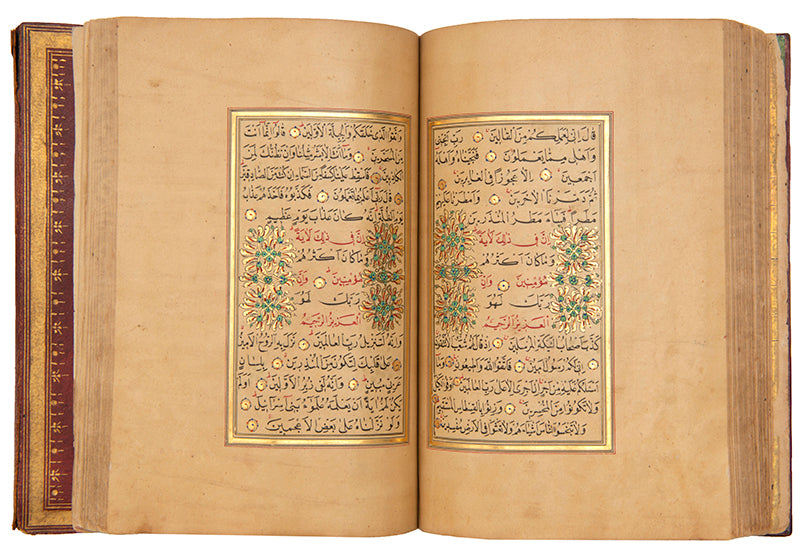 قَالَ اِنّٖى لِعَمَلِكُمْ مِنَ الْقَالٖينَ رَبِّ نَجِّنٖى
وَاَهْلٖى مِمَّا يَعْمَلُونَ فَنَجَّيْنَاهُ وَاَهْلَهُ
اَجْمَعٖينَ اِلَّا عَجُوزًا فِى الْغَابِرٖينَ
ثُمَّ دَمَّرْنَا الْاٰخَرٖينَ وَاَمْطَرْنَا عَلَيْهِمْ
مَطَرًا فَسَاءَ مَطَرُ الْمُنْذَرٖينَ
اِنَّ فٖى ذٰلِكَ لَاٰيَةً
وَمَا كَانَ اَكْثَرُهُمْ
مُؤْمِنٖينَ وَاِنَّ
رَبَّكَ لَهُوَ
الْعَزٖيزُ الرَّحٖيمُ
كَذَّبَ اَصْحَابُ الْـَٔيْكَةِ الْمُرْسَلٖينَ اِذْ قَالَ لَهُمْ شُعَيْبٌ اَلَا تَتَّقُونَ
اِنّٖى لَكُمْ رَسُولٌ اَمٖينٌ فَاتَّقُوا اللّٰهَ وَاَطٖيعُونِ وَمَا
اَسْـَٔلُكُمْ عَلَيْهِ مِنْ اَجْرٍ اِنْ اَجْرِىَ اِلَّا عَلٰى رَبِّ الْعَالَمٖينَ اَوْفُوا الْكَيْلَ
وَلَا تَكُونُوا مِنَ الْمُخْسِرٖينَ وَزِنُوا بِالْقِسْطَاسِ الْمُسْتَقٖيمِ
وَلَا تَبْخَسُوا النَّاسَ اَشْيَاءَهُمْ وَلَا تَعْثَوْا فِى الْاَرْضِ مُفْسِدٖينَ
وَاتَّقُوا الَّذٖى خَلَقَكُمْ وَالْجِبِلَّةَ الْاَوَّلٖينَ قَالُوا اِنَّمَا اَنْتَ
مِنَ الْمُسَحَّرٖينَ وَمَا اَنْتَ اِلَّا بَشَرٌ مِثْلُنَا وَاِنْ نَظُنُّكَ لَمِنَ
الْكَاذِبٖينَ فَاَسْقِطْ عَلَيْنَا كِسَفًا مِنَ السَّمَاءِ اِنْ كُنْتَ مِنَ الصَّادِقٖينَ
قَالَ رَبّٖى اَعْلَمُ بِمَا تَعْمَلُونَ فَكَذَّبُوهُ فَاَخَذَهُمْ عَذَابُ
يَوْمِ الظُّلَّةِ اِنَّهُ كَانَ عَذَابَ يَوْمٍ عَظٖيمٍ
اِنَّ فٖى ذٰلِكَ لَاٰيَةً
وَمَا كَانَ اَكْثَرُهُمْ
مُؤْمِنٖينَ وَاِنَّ
رَبَّكَ لَهُوَ
الْعَزٖيزُ الرَّحٖيمُ
وَاِنَّهُ لَتَنْزٖيلُ رَبِّ الْعَالَمٖينَ نَزَلَ بِهِ الرُّوحُ الْاَمٖينُ
عَلٰى قَلْبِكَ لِتَكُونَ مِنَ الْمُنْذِرٖينَ بِلِسَانٍ
عَرَبِىٍّ مُبٖينٍ وَاِنَّهُ لَفٖى زُبُرِ الْاَوَّلٖينَ اَوَلَمْ
يَكُنْ لَهُمْ اٰيَةً اَنْ يَعْلَمَهُ عُلَمٰؤُا بَنٖى اِسْرَائٖيلَ
وَلَوْ نَزَّلْنَاهُ عَلٰى بَعْضِ الْاَعْجَمٖينَ